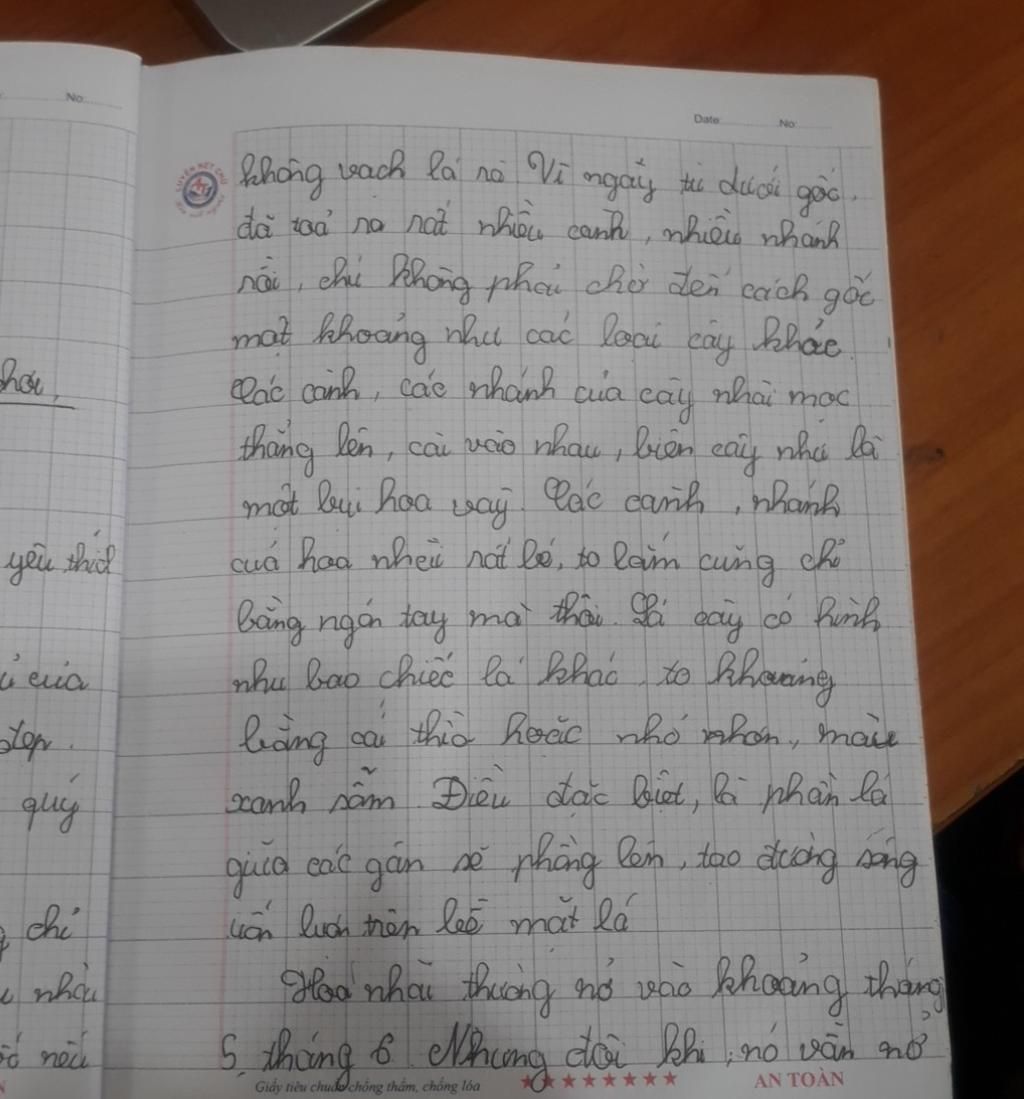 No:
Date: No:
không vạch lá nò Vì ngay từ dưới gốc,
đã toả ra rất nhiều cành, nhiều nhánh
rồi, chứ không phải chờ đến cách gốc
một khoảng như các loại cây khác.
Các cành, các nhánh của cây nhài mọc
thẳng lên, cài vào nhau, biến cây như là
một bụi hoa vậy. Các cành, nhánh
của hoa nhài rất bé, to lắm cũng chỉ
bằng ngón tay mà thôi. Lá cây có hình
như bao chiếc lá khác, to khoảng
bằng cái thìa hoặc nhỏ nhơn, màu
xanh sẫm. Điều đặc biệt, là phần lá
giữa các gân sẽ phồng lên, tạo đường sóng
uốn lượn trên bề mặt lá
Hoa nhài thường nở vào khoảng tháng
5, tháng 6. Nhưng đôi khi, nó vẫn nở
Giấy tiêu chuẩn chống thấm, chống lóa
AN TOÀN
yêu thích
của
đẹp.
quý
chỉ
nhài